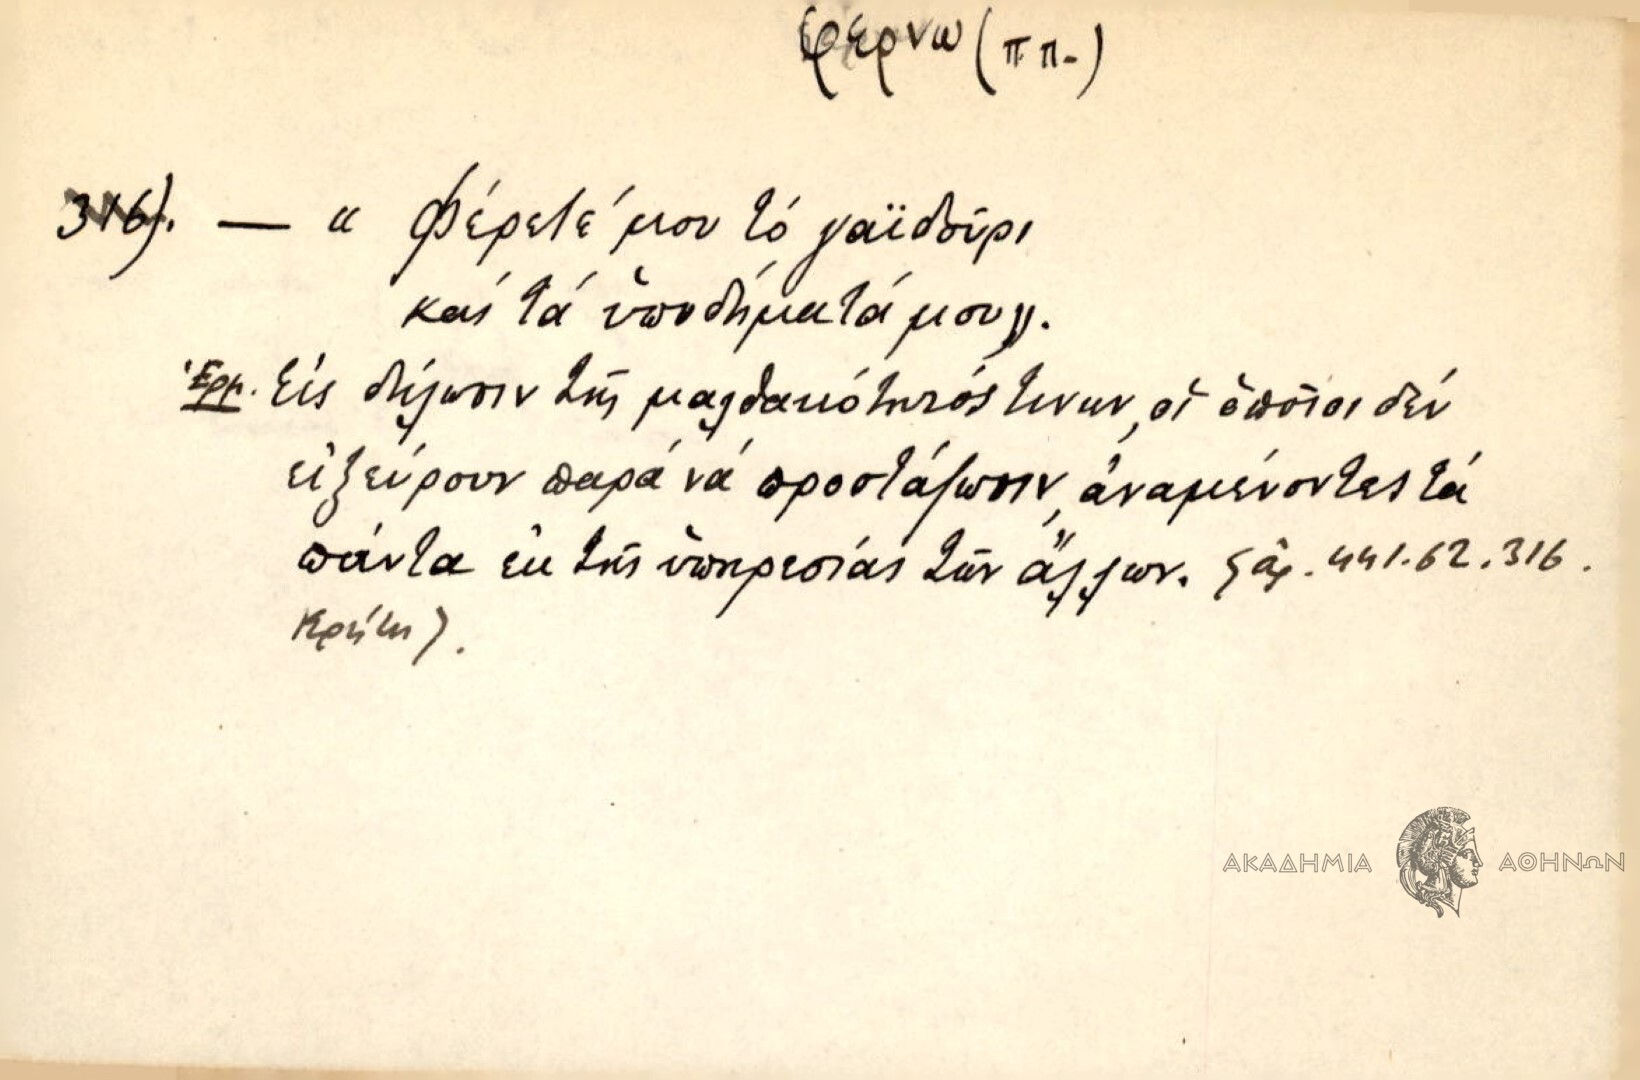 φέρνω (ππ.)
316). — « Φέρετέ μου τό γαϊδούρι
καί τά ὑποδήματά μου».
Ἑρμ. Εἰς δήλωσιν τῆς μαλθακότητός τινων, οἱ ὁποῖοι δέν
εἰξεύρουν παρά νά προστάζωσιν, ἀναμένοντες τά
πάντα ἐκ τῆς ὑπηρεσίας τῶν ἄλλων. 441.62.316.
Κρήτη).
ΑΚΑΔΗΜΙΑ ΑΘΗΝΩΝ